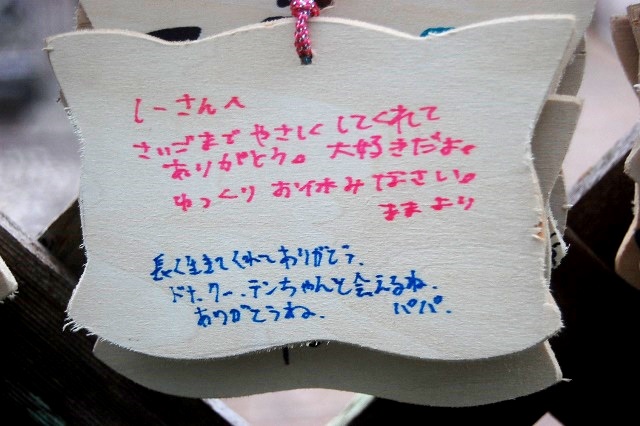 しーさんへ
さいごまで やさしく してくれて
ありがとう。大好きだよ。
ゆっくり お休みなさい。
ままより
長く生きてくれてありがとう.
ドナ.クー.テンちゃんと会えるね.
ありがとうね.
パパ.